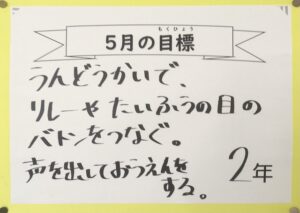 もくひょう
5月の目標
うんどうかいで、
リレーや たいふうの目の
バトンをつなぐ。
声を出しておうえんを
する。
2年